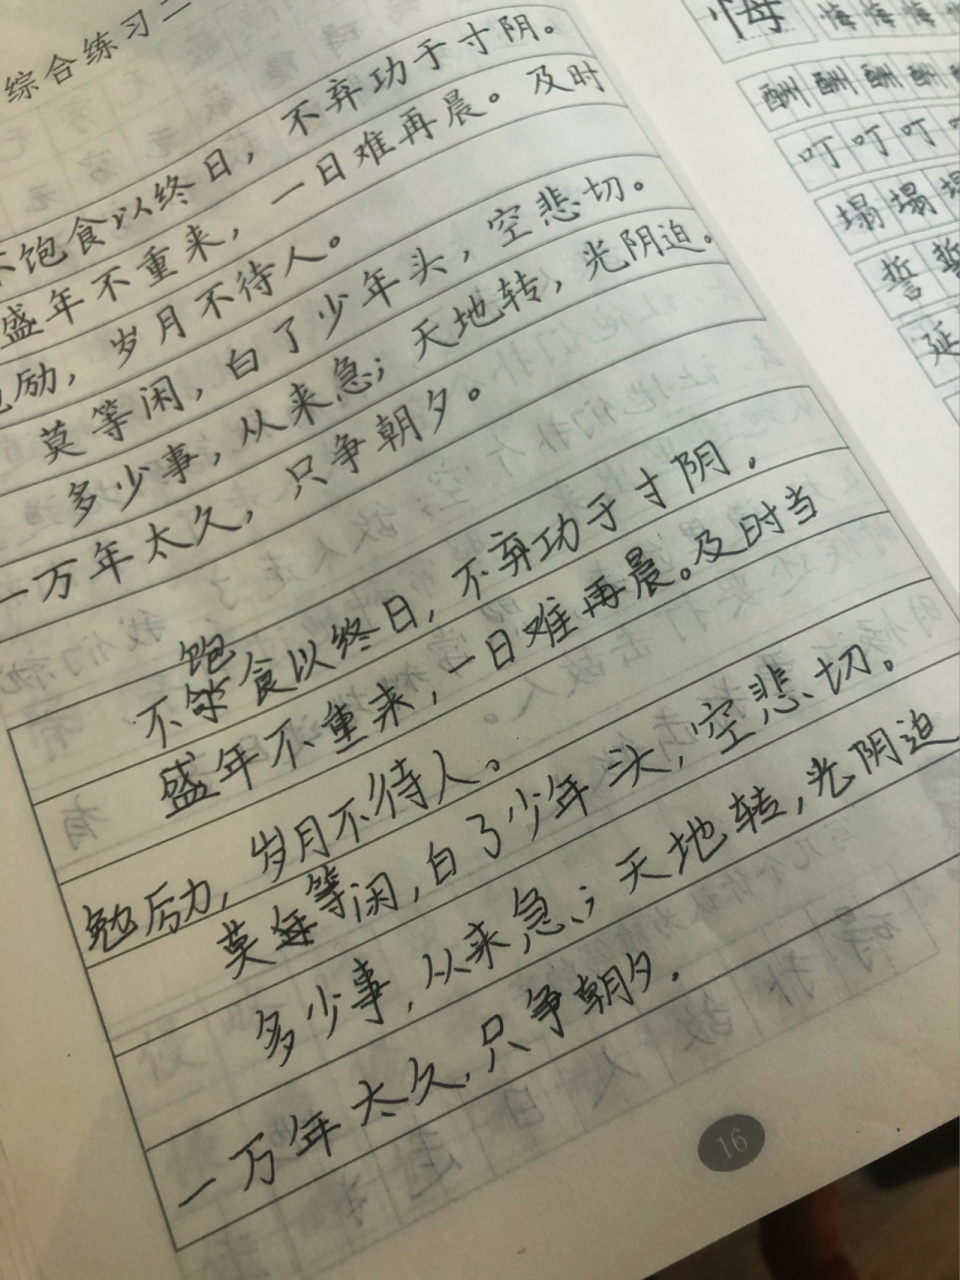 综合练习二
不饱食以终日，不弃功于寸阴。
盛年不重来，一日难再晨。及时
勉励，岁月不待人。
莫等闲，白了少年头，空悲切。
多少事，从来急；天地转，光阴迫。
一万年太久，只争朝夕。
饱
不食以终日，不弃功于寸阴．
盛年不重来，一日难再晨。及时当
勉励，岁月不待人。
莫等闲，白了少年头，空悲切。
多少事，从来急；天地转，光阴迫
一万年太久，只争朝夕．
16
悔 悔 悔 悔 悔
酬 酬 酬 酬 酬
叮 叮 叮
塌 塌 塌
誓 誓
延